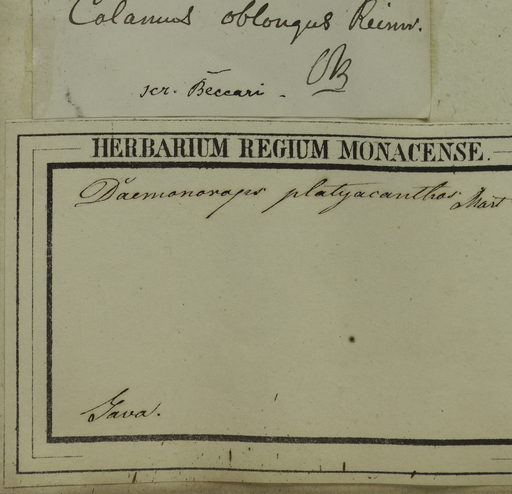 Calamus oblongus Reinw.
OB
scr. Beccari -
HERBARIUM REGIUM MONACENSE.
Daemonorops platyacanthos Mart
Java.